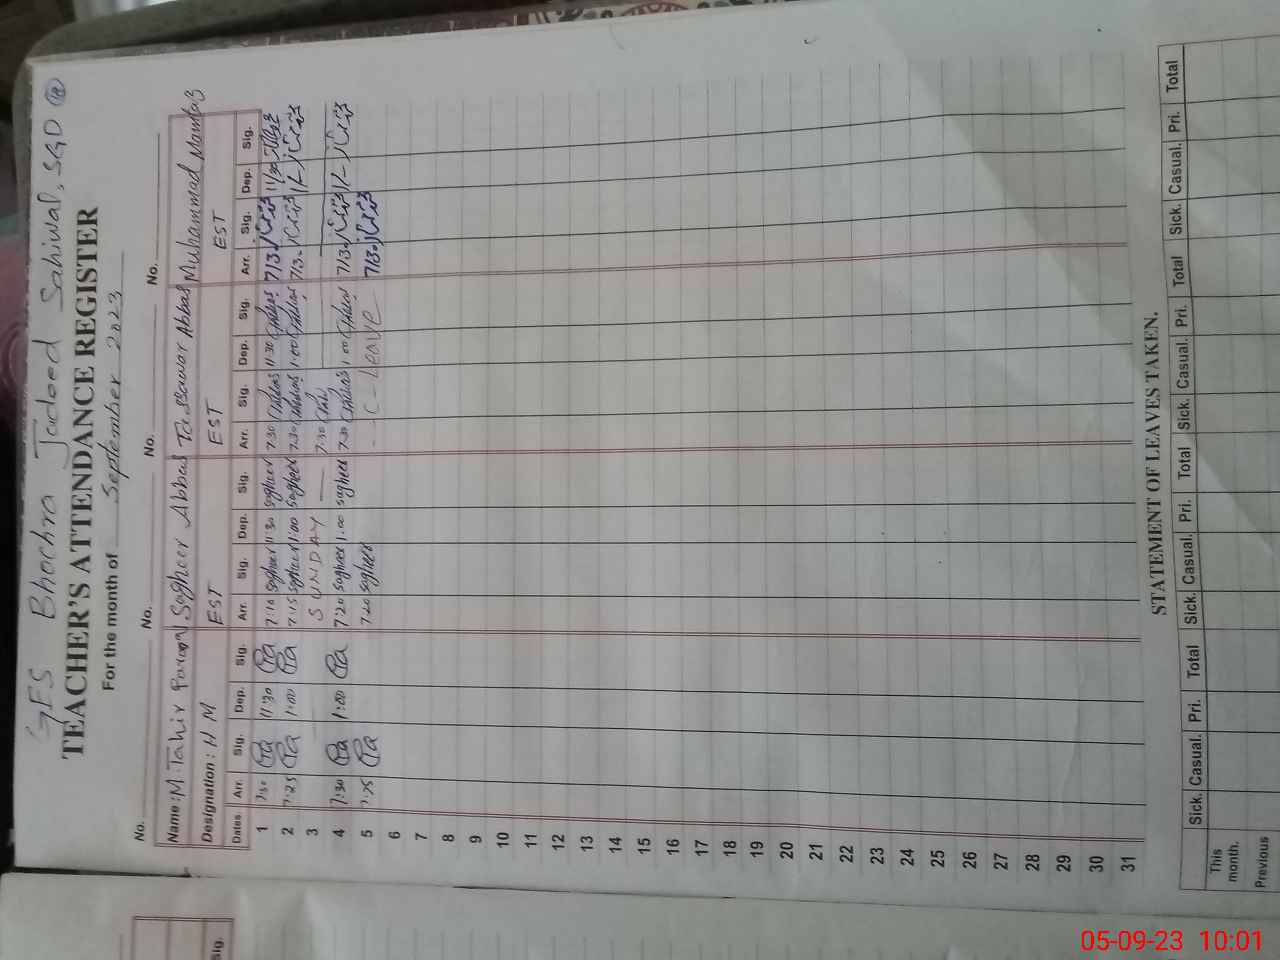 GES Bhochra Jadeed Sahiwal, SGD
TEACHER'S ATTENDANCE REGISTER
For the month of September 2023
No. No. No. No.
Name: M. Tahir Sagheer Abbas Tassawar Abbas Muhammad Mumtaz
Designation: H M EST EST EST
Dates. Arr. Sig. Dep. Sig. Arr. Sig. Dep. Sig. Arr. Sig. Dep. Sig. Arr. Sig. Dep. Sig.
1 7:30 11:30 7:10 Sagheer 11:30 Sagheer 7:30 11:30 7/30 11/30
2 7:25 1:00 7:15 Sagheer 1:00 Sagheer 7:30 1:00 7/30 1/-
3 SUNDAY 7:30
4 7:30 1:00 7:20 Sagheer 1:00 Sagheer 7:30 1:00 7/30 1/-
5 7:25 7:20 Sagheer C-Leave 7/30
6
7
8
9
10
11
12
13
14
15
16
17
18
19
20
21
22
23
24
25
26
27
28
29
30
31
STATEMENT OF LEAVES TAKEN.
Sick. Casual. Pri. Total Sick. Casual. Pri. Total Sick. Casual. Pri. Total Sick. Casual. Pri. Total
This month.
Previous
Sig.
05-09-23 10:01